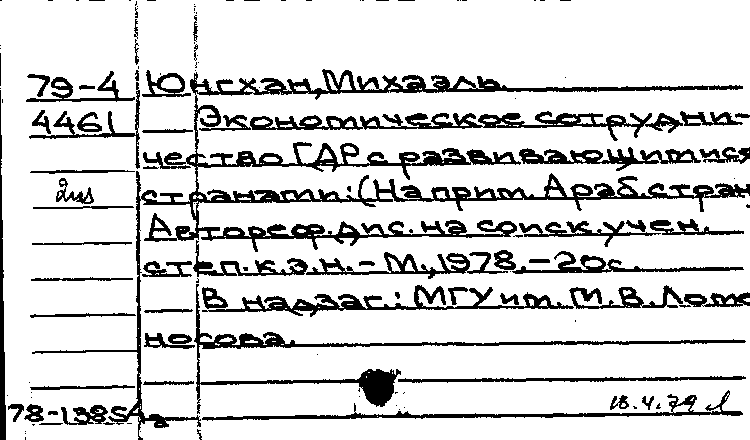 79-4 Юнгхан, Михаэль.
4461 Экономическое сотрудни-
чество ГДР с развивающимися
странами: (На прим. Араб. стран
Автореф. дис. на соиск. учен.
степ. к.э.н. - М., 1978. - 20с.
В надзаг.: МГУ им. М.В. Ломо
носова.
78-13854
18.4.79